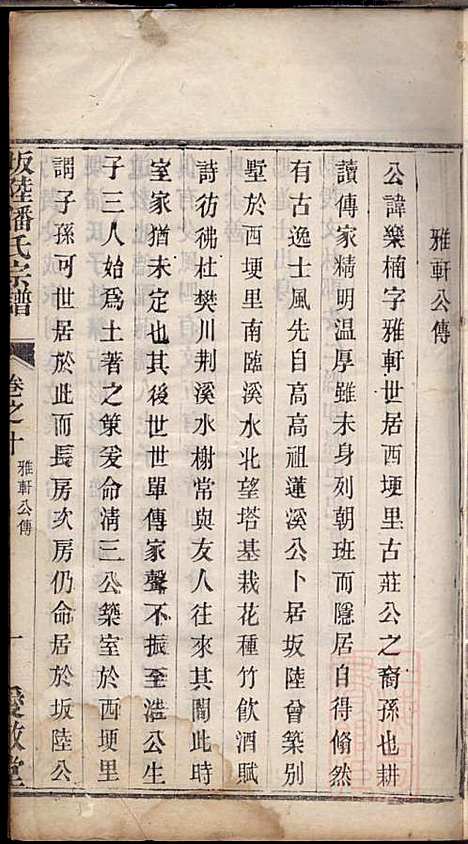 雅軒公傳
公諱樂楠字雅軒世居西埂里古莊公之裔孫也耕
讀傳家精明溫厚雖未身列朝班而隱居自得翛然
有古逸士風先自高高祖蓮溪公卜居坂陸曾築別
墅於西埂里南臨溪水北望塔基栽花種竹飲酒賦
詩彷彿杜樊川荆溪水榭常與友人往來其閒此時
室家猶未定也其後世世單傳家聲不振至浩公生
子三人始爲土著之策爰命淸三公築室於西埂里
謂子孫可世居於此而長房次房仍命居於坂陸公
坂陸潘氏宗譜
卷之十
雅軒公傳
一
敦堂